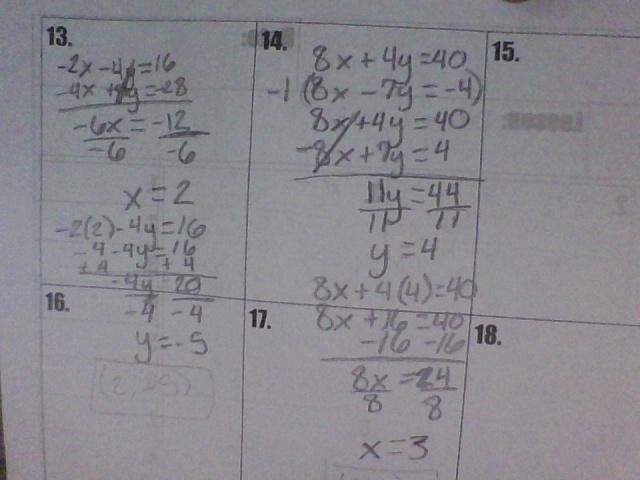 13.
-2x - 4y = 16
-4x + 4y = -28
-6x = -12
-6 -6
x = 2
-2(2) - 4y = 16
-4 - 4y = 16
+4 +4
-4y = 20
-4 -4
y = -5
(2, -5)
14.
8x + 4y = 40
-1 (8x - 7y = -4)
8x + 4y = 40
-8x + 7y = 4
11y = 44
11 11
y = 4
8x + 4(4) = 40
8x + 16 = 40
-16 -16
8x = 24
8 8
x = 3
15.
16.
17.
18.